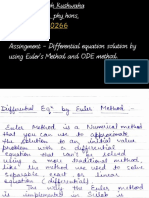 sh Kushwaha
phy hons,
0266
Assingment - Differential equation solution by
using Euler's Method and ODE method.
Differential Eqn by Euler Method -
Euler Method is a Numerical method
that you can use to approximate
the solution to an initial value
problem with a differential
Equation that can't be solved
using a more traditional method,
like the methods we use to solve
Separable, exact or linear
differential Equation.
The way the Euler Method
is implemented is